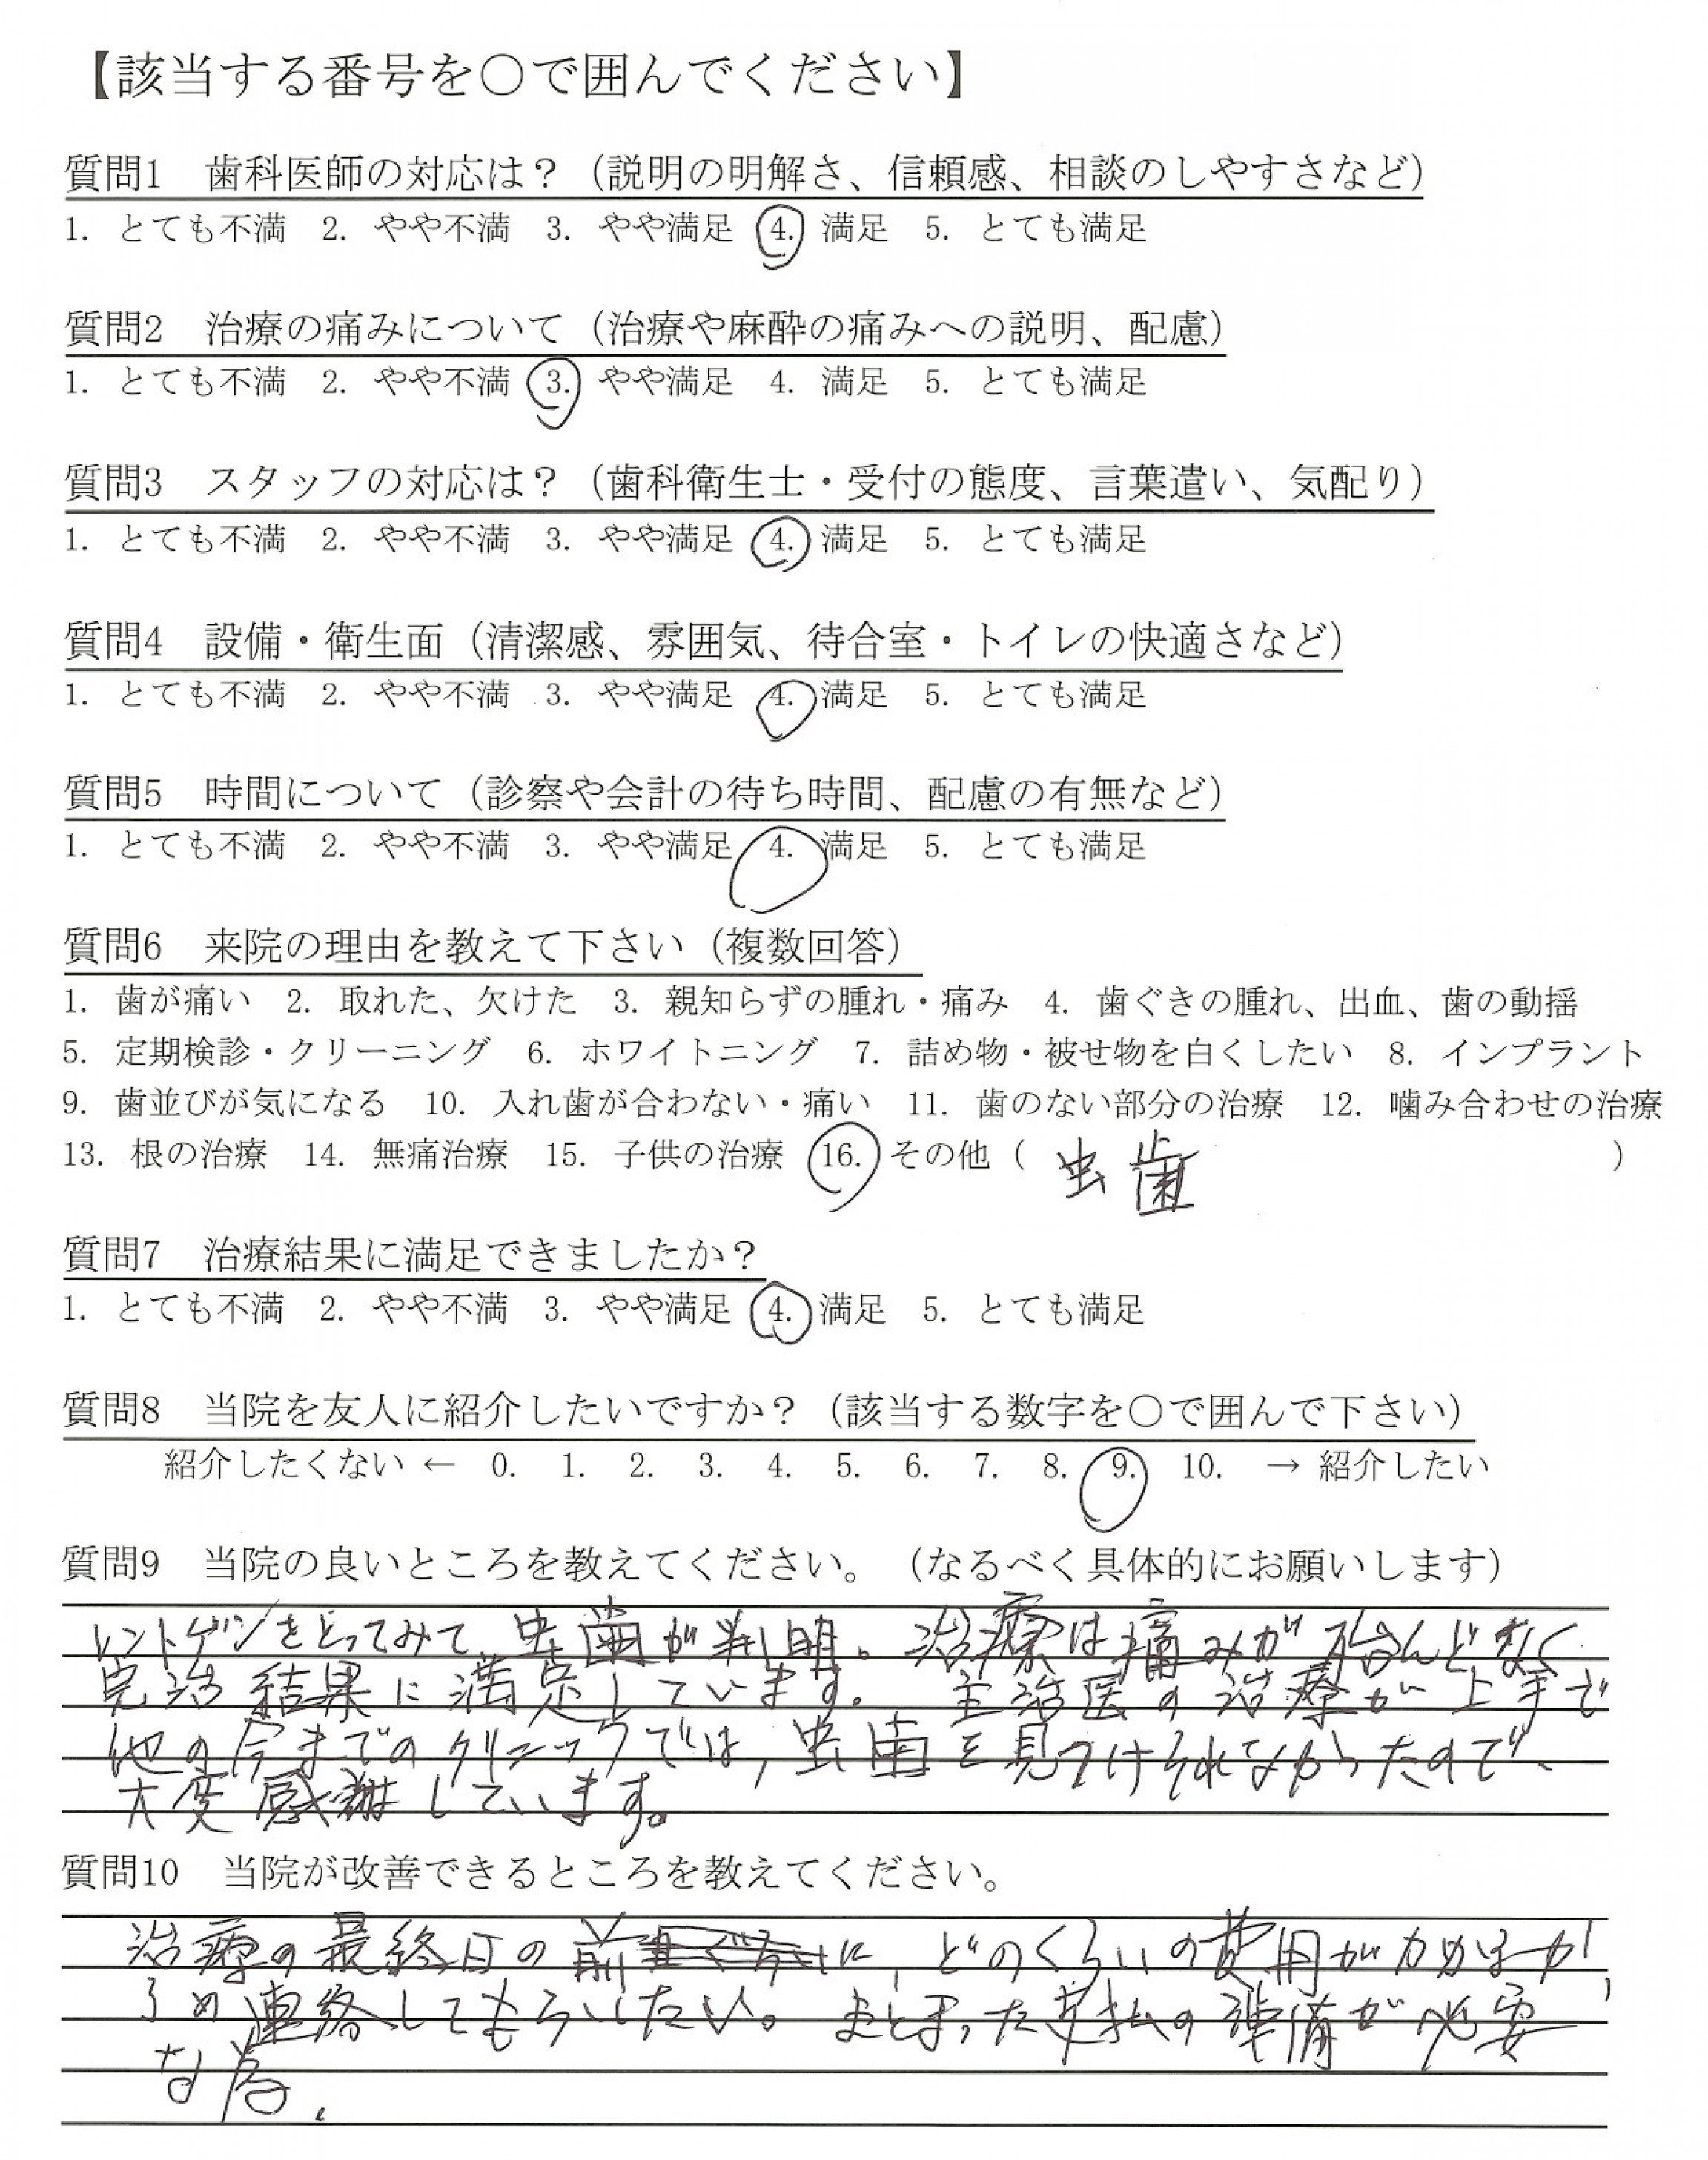 【該当する番号を○で囲んでください】
質問1 歯科医師の対応は？（説明の明解さ、信頼感、相談のしやすさなど）
1. とても不満 2. やや不満 3. やや満足 4. 満足 5. とても満足
質問2 治療の痛みについて（治療や麻酔の痛みへの説明、配慮）
1. とても不満 2. やや不満 3. やや満足 4. 満足 5. とても満足
質問3 スタッフの対応は？（歯科衛生士・受付の態度、言葉遣い、気配り）
1. とても不満 2. やや不満 3. やや満足 4. 満足 5. とても満足
質問4 設備・衛生面（清潔感、雰囲気、待合室・トイレの快適さなど）
1. とても不満 2. やや不満 3. やや満足 4. 満足 5. とても満足
質問5 時間について（診察や会計の待ち時間、配慮の有無など）
1. とても不満 2. やや不満 3. やや満足 4. 満足 5. とても満足
質問6 来院の理由を教えて下さい（複数回答）
1. 歯が痛い 2. 取れた、欠けた 3. 親知らずの腫れ・痛み 4. 歯ぐきの腫れ、出血、歯の動揺
5. 定期検診・クリーニング 6. ホワイトニング 7. 詰め物・被せ物を白くしたい 8. インプラント
9. 歯並びが気になる 10. 入れ歯が合わない・痛い 11. 歯のない部分の治療 12. 噛み合わせの治療
13. 根の治療 14. 無痛治療 15. 子供の治療 16. その他（ 虫歯 ）
質問7 治療結果に満足できましたか？
1. とても不満 2. やや不満 3. やや満足 4. 満足 5. とても満足
質問8 当院を友人に紹介したいですか？（該当する数字を○で囲んで下さい）
紹介したくない ← 0. 1. 2. 3. 4. 5. 6. 7. 8. 9. 10. → 紹介したい
質問9 当院の良いところを教えてください。（なるべく具体的にお願いします）
レントゲンをとってみて、虫歯が判明。治療は痛みが殆んどなく
完治結果に満足しています。主治医の治療が上手で
他の今までのクリニックでは、虫歯を見つけきれなかったので、
大変感謝しています。
質問10 当院が改善できるところを教えてください。
治療の最終日の前に、どのくらいの費用がかかるか、
連絡してもらいたい。まとまった支払の準備が必要
な為。